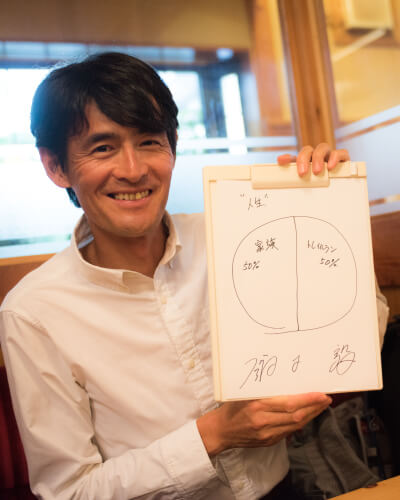 "人生"
家族
50%
トレイルラン
50%